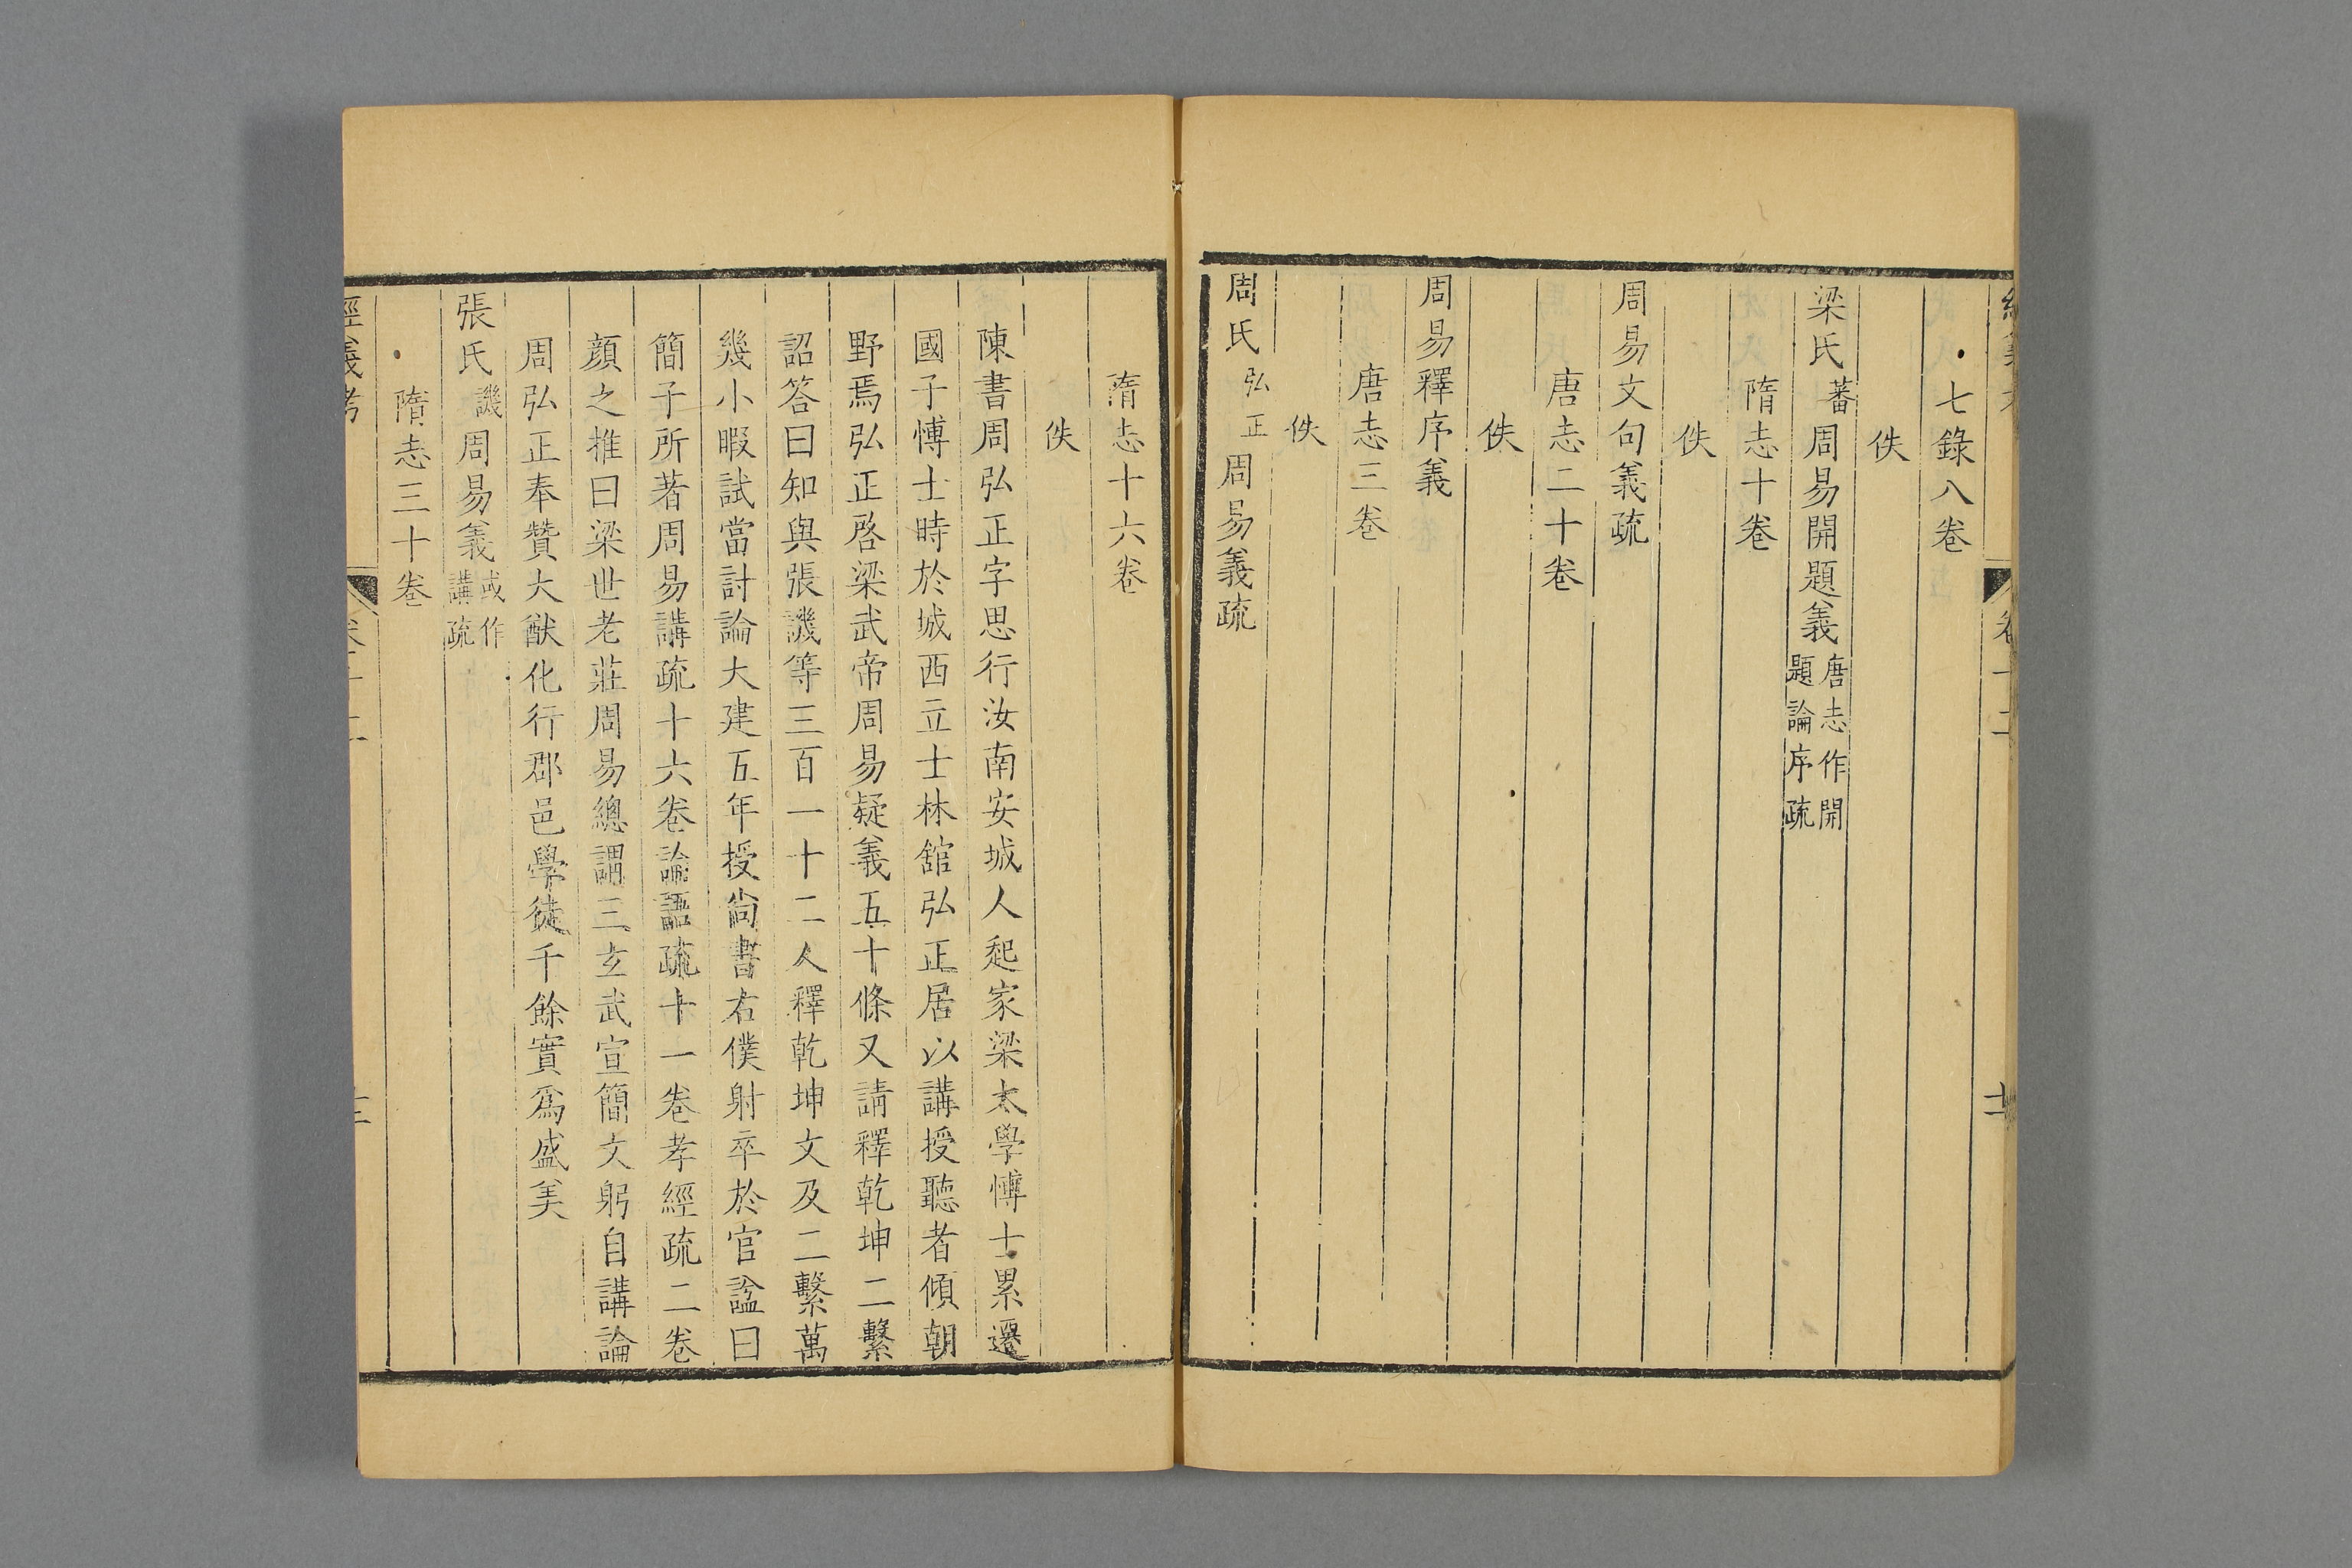 七錄八卷
佚
梁氏蕃周易開題義唐志作開題論序疏
隋志十卷
佚
周易文句義疏
唐志二十卷
佚
周易釋序義
唐志三卷
佚
周氏弘正周易義疏
隋志十六卷
佚
陳書周弘正字思行汝南安城人起家梁太學博士累遷
國子博士時於城西立士林舘弘正居以講授聽者傾朝
野焉弘正啓梁武帝周易疑義五十條又請釋乾坤二繫
詔答曰知與張譏等三百一十二人釋乾坤文及二繫萬
幾小暇試當討論大建五年授尙書右僕射卒於官諡曰
簡子所著周易講疏十六卷論語疏十一卷孝經疏二卷
顔之推曰梁世老莊周易總謂三玄武宣簡文躬自講論
周弘正奉贊大猷化行郡邑學徒千餘實爲盛美
張氏譏周易義或作講疏
隋志三十卷
經義考